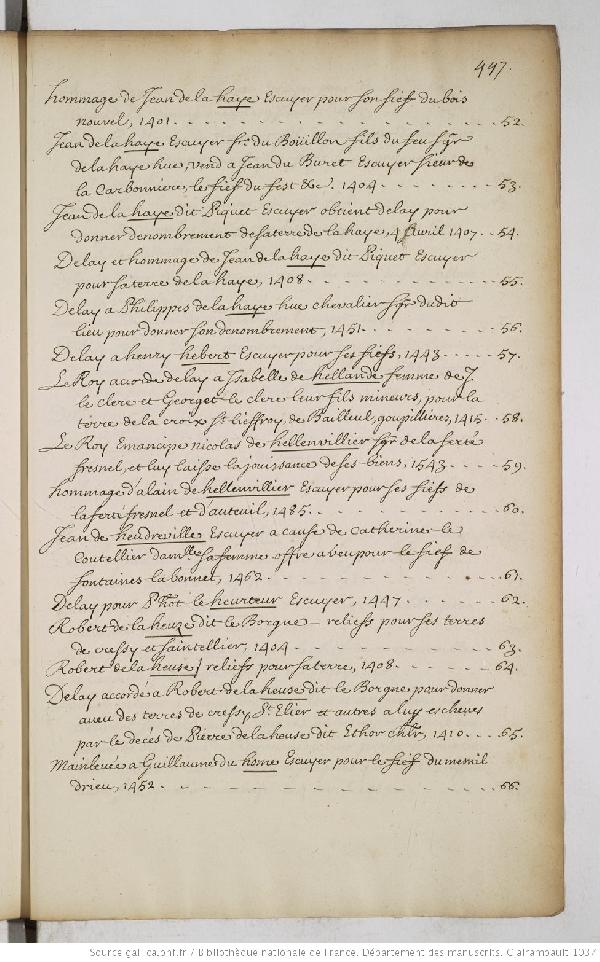 447.
hommage de Jean de la haye Escuyer pour son fief du bois
nouvel, 1401. - - - - - - - - - - - - - - - - - - - - 52.
Jean de la haye Escuyer sr. du Boüillon fils du feu sgr
de la haye hue, vend a Jean du Buret Escuyer sieur de
la Carbonniere, le fief du fest &c. 1404 - - - - - - - - 53.
Jean de la haye dit Piquet Escuyer obtient delay pour
donner denombrement de sa terre de la haye, 4 Avril 1407 - 54.
Delay et hommage de Jean de la haye dit Piquet Escuyer
pour sa terre de la haye, 1408 - - - - - - - - - - - - 55.
Delay a Philippes de la haye hue chevalier sgr dudit
lieu pour donner son denombrement, 1451 - - - - - - - - 56.
Delay a henry hebert Escuyer pour ses fiefs, 1443 - - - - - 57.
Le Roy acorde delay a Isabelle de hellande femme de J.
le clerc et Georget le clerc leur fils mineurs, pour la
terre de la croix St. Lieffroy, de Bailleul, goupillieres, 1415 - - 58.
Le Roy Emancipe nicolas de hellenvillier sgr de la ferté
fresnel, et luy laisse la jouissance de ses biens, 1543 - - - - 59.
hommage d'alain de hellenvillier Escuyer pour ses fiefs de
la ferté fresnel et d'auteuil, 1485 - - - - - - - - - - - 60.
Jean de heudreville Escuyer a cause de Catherine le
Coutellier damlle sa femme offre aveu pour le fief de
fontaines la bonnet, 1462 - - - - - - - - - - - - - 61.
Delay pour Phot le heurteur Escuyer, 1447 - - - - - - - 62.
Robert de la heuze dit le Borgne - reliefs pour ses terres
de cressy et saintellier, 1404 - - - - - - - - - - - - 63.
Robert de la heuse / reliefs pour sa terre, 1408 - - - - - - - 64.
Delay accordé a Robert de la heuse dit le Borgne pour donner
aveu des terres de cressy, St Elier et autres a luy escheues
par le decés de Pierre de la heuse dit Ethor chlr, 1410 - - - 65.
Mainlevée a Guillaume du home Escuyer pour le fief du mesnil
drieu, 1452 - - - - - - - - - - - - - - - - - - - - 66.
Source gallica.bnf.fr / Bibliothèque nationale de France. Département des manuscrits. Clairambault 1037